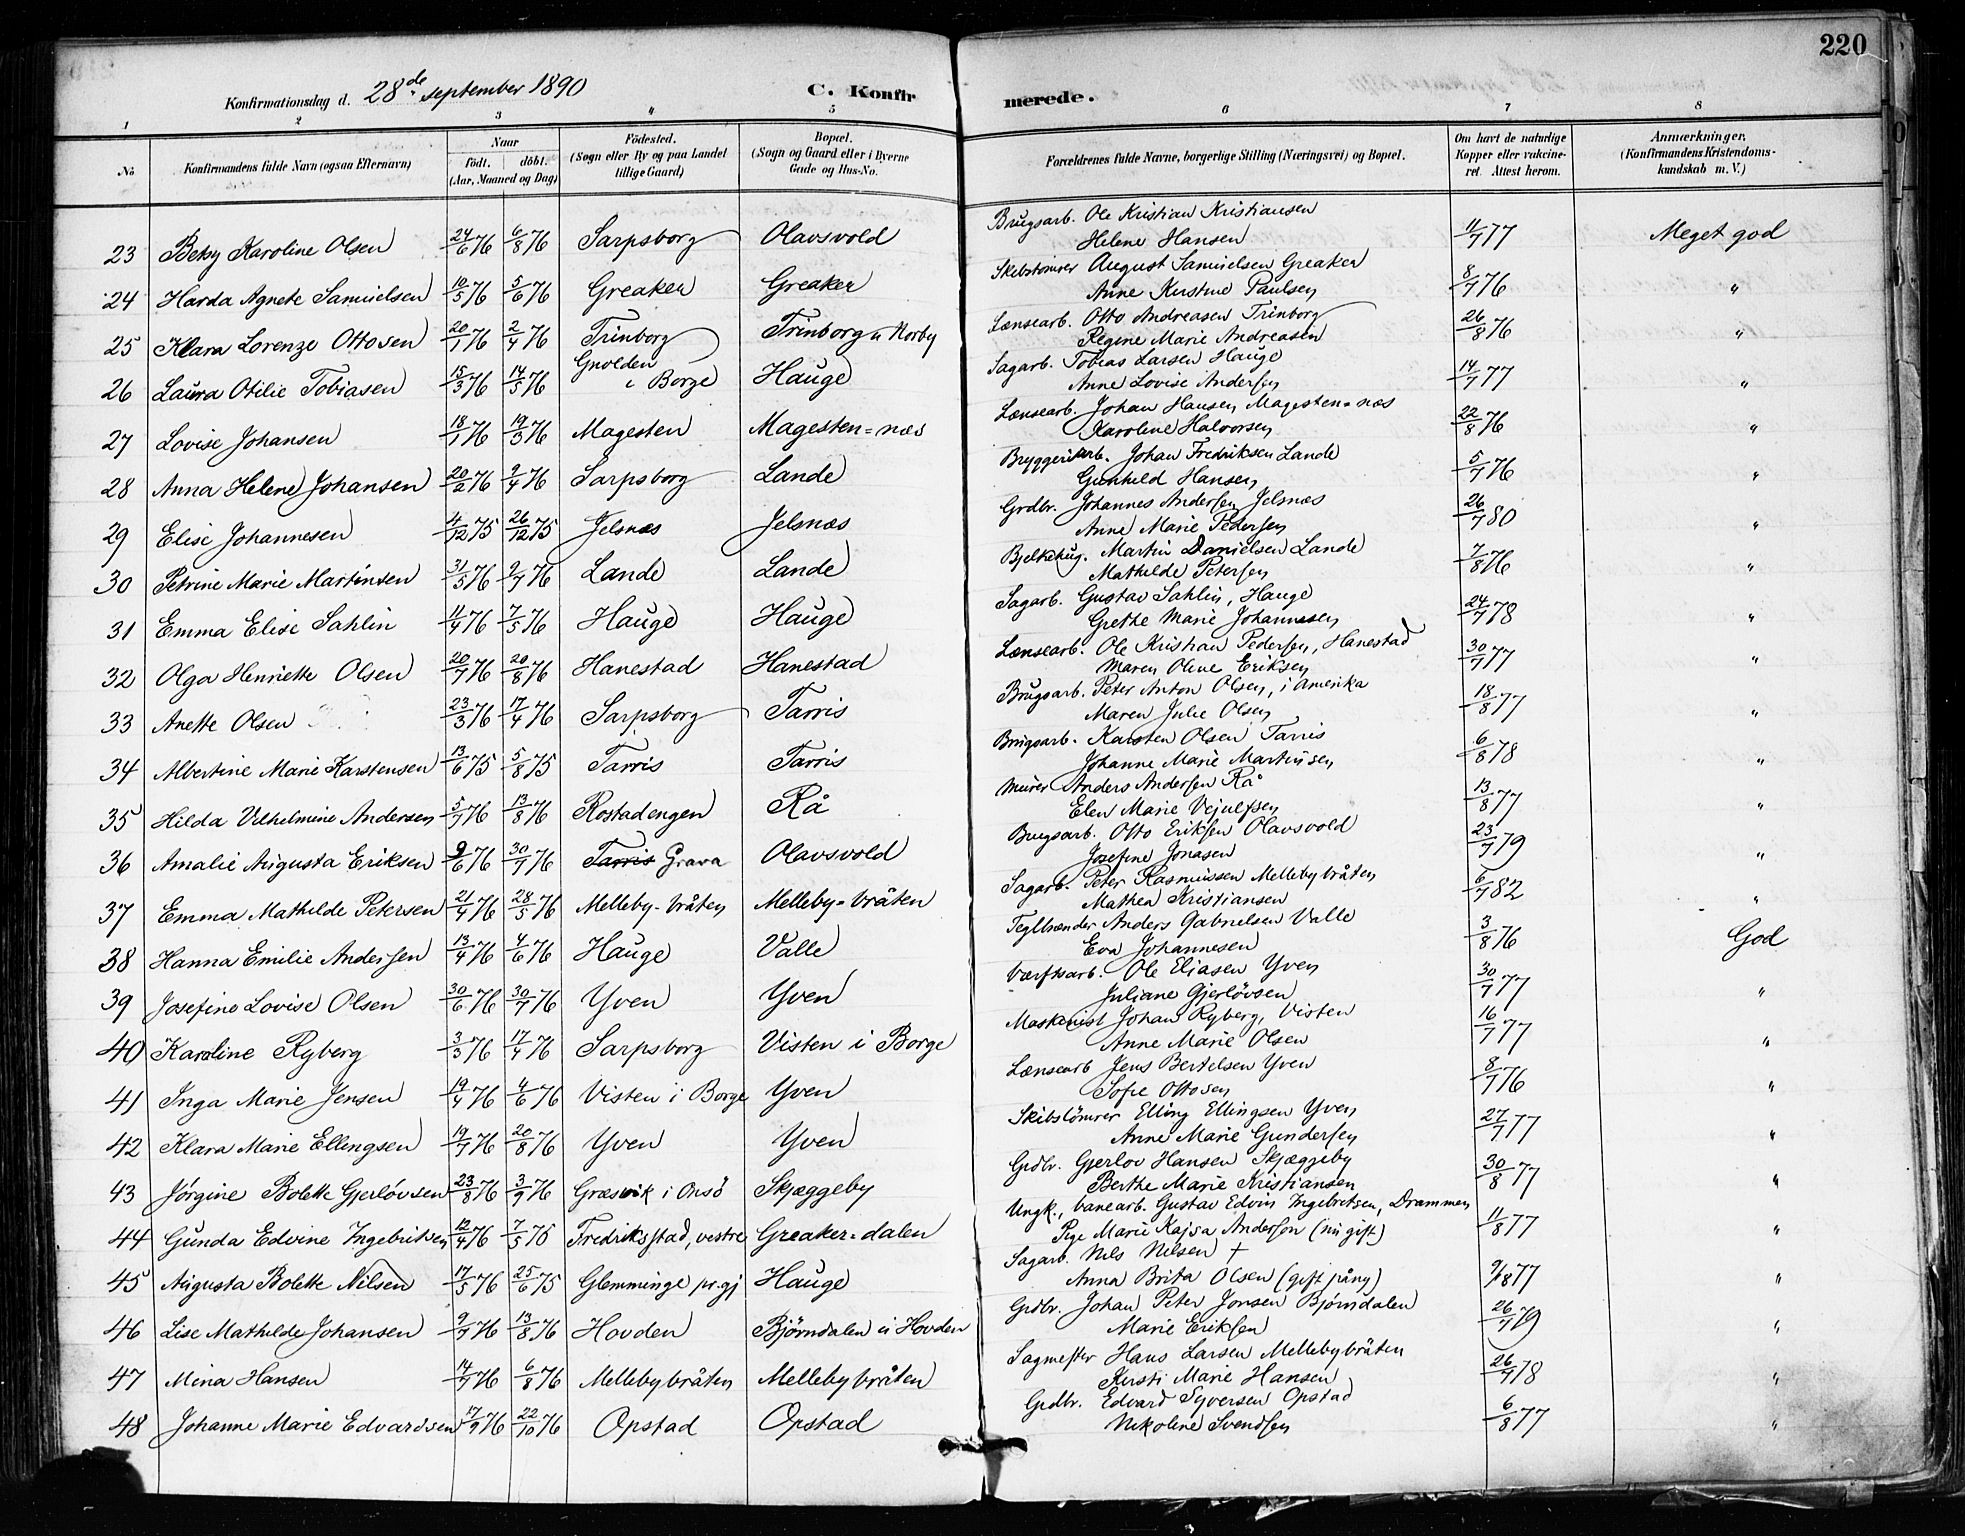 220
Konfirmationsdag d. 28de september 1890 C. Konfirmerede.
1 2 3 4 5 6 7 8
No Konfirmandens fulde Navn (ogsaa Efternavn) Naar födt. döbt. (Aar, Maaned og Dag) Födested. (Sogn eller By og paa Landet tillige Gaard) Bopæl. (Sogn og Gaard eller i Byerne Gade og Hus-No. Forældrenes fulde Navne, borgerlige Stilling (Næringsvei) og Bopæl. Om havt de naturlige Kopper eller vakcineret. Attest herom. Anmærkninger. (Konfirmandens Kristendomskundskab m. V.)
23 Betsy Karoline Olsen 24/6 76 6/8 76 Sarpsborg Olavsvold Brugsarb. Ole Kristian Kristiansen
Helene Hansen 11/7 77 Meget god
24 Harda Agnete Samuelsen 10/5 76 5/6 76 Greaker Greaker Skibstömrer August Samuelsen Greaker
Anne Kirstine Paulsen 8/7 76 "
25 Klara Lorenze Ottosen 20/1 76 2/4 76 Trinborg Trinborg u Norby Lænsearb. Otto Andreasen Trinborg
Regine Marie Andreasen 26/8 76 "
26 Laura Otilie Tobiasen 15/3 76 14/5 76 Gnolden i Borge Hauge Sagarb. Tobias Larsen Hauge
Anne Lovise Andersen 14/7 77 "
27 Lovise Johansen 18/1 76 19/3 76 Magesten Magesten=næs Lænsearb. Johan Hansen Magesten=næs
Karoline Halvorsen 22/8 76 "
28 Anna Helene Johansen 20/2 76 9/4 76 Sarpsborg Lande Bryggeriarb. Johan Fredriksen Lande
Gunhild Hansen 5/7 76 "
29 Elise Johannesen 4/12 75 26/12 75 Jelsnæs Jelsnæs Grdbr. Johannes Andersen Jelsnæs
Anne Marie Pedersen 26/7 80 "
30 Petrine Marie Martinsen 31/5 76 9/7 76 Lande Lande Bjelkehug. Martin Danielsen Lande
Mathilde Petersen 7/8 76 "
31 Emma Elise Sahlin 11/4 76 7/5 76 Hauge Hauge Sagarb. Gustav Sahlin, Hauge
Grethe Marie Johannesen 24/7 78 "
32 Olga Henriette Olsen 20/7 76 20/8 76 Hanestad Hanestad Lænsearb. Ole Kristian Pedersen, Hanestad
Maren Oline Eriksen 30/7 77 "
33 Anette Olsen 23/3 76 17/4 76 Sarpsborg Tarris Brugsarb. Peter Anton Olsen, i Amerika
Maren Julie Olsen 18/8 77 "
34 Albertine Marie Karstensen 13/6 75 5/8 75 Tarris Tarris Brugsarb. Karsten Olsen Tarris
Johanne Marie Martinsen 6/8 78 "
35 Hilda Vilhelmine Andersen 5/7 76 13/8 76 Rostadengen Rå Murer Anders Andersen Rå
Elen Marie Vejulfsen 13/8 77 "
36 Amalie Augusta Eriksen 9/6 76 30/7 76 Tarris Grava Olavsvold Brugsarb. Otto Eriksen Olavsvold
Josefine Jonasen 23/7 79 "
37 Emma Mathilde Petersen 21/4 76 28/5 76 Melleby-bråten Melleby=bråten Sagarb. Peter Rasmussen Mellebybråten
Mathea Kristiansen 6/7 82 "
38 Hanna Emilie Andersen 13/4 76 4/6 76 Hauge Valle Teglbrænder Anders Gabrielsen Valle
Eva Johannesen 3/8 76 God
39 Josefine Lovise Olsen 30/6 76 30/7 76 Yven Yven Værftsarb. Ole Eliasen Yven
Juliane Gjerlövsen 30/7 77 "
40 Karoline Ryberg 3/3 76 17/4 76 Sarpsborg Visten i Borge Maskinist Johan Ryberg, Visten
Anne Marie Olsen 16/7 77 "
41 Inga Marie Jensen 19/4 76 4/6 76 Visten i Borge Yven Lænsearb Jens Bertelsen Yven
Sofie Ottosen 8/7 76 "
42 Klara Marie Ellingsen 19/7 76 20/8 76 Yven Yven Skibstömrer Elling Ellingsen Yven
Anne Marie Gundersen 27/7 77 "
43 Jörgine Bolette Gjerlövsen 23/8 76 3/9 76 Græsvik i Onsö Skjæggeby Grdbr. Gjerlov Hansen Skjæggeby
Berthe Marie Kristiansen 30/8 77 "
44 Gunda Edvine Ingebritsen 12/4 76 7/5 76 Fredriksstad, vestre Greaker=dalen Ungk., banearb. Gustav Edvin Ingebritsen, Drammen
Pige Marie Kajsa Anderson (nu gift) 11/8 77 "
45 Augusta Bolette Nilsen 17/5 76 25/6 75 Glemminge pr.gj Hauge Sagarb. Nils Nilsen †
Anna Brita Olsen (gift påny) 9/8 77 "
46 Lise Mathilde Johansen 9/7 76 13/8 76 Hovden Björndalen u Hovden Grdbr. Johan Peter Jonsen Bjørndalen
Marie Eriksen 26/7 79 "
47 Mina Hansen 14/7 76 6/8 76 Mellebybråten Mellebybråten Sagmester Hans Larsen Mellebybråten
Kirsti Marie Hansen 26/7 78 "
48 Johanne Marie Edvardsen 17/9 76 22/10 76 Opstad Opstad Grdbr. Edvard Syversen Opstad
Nikoline Svendsen 6/8 77 "